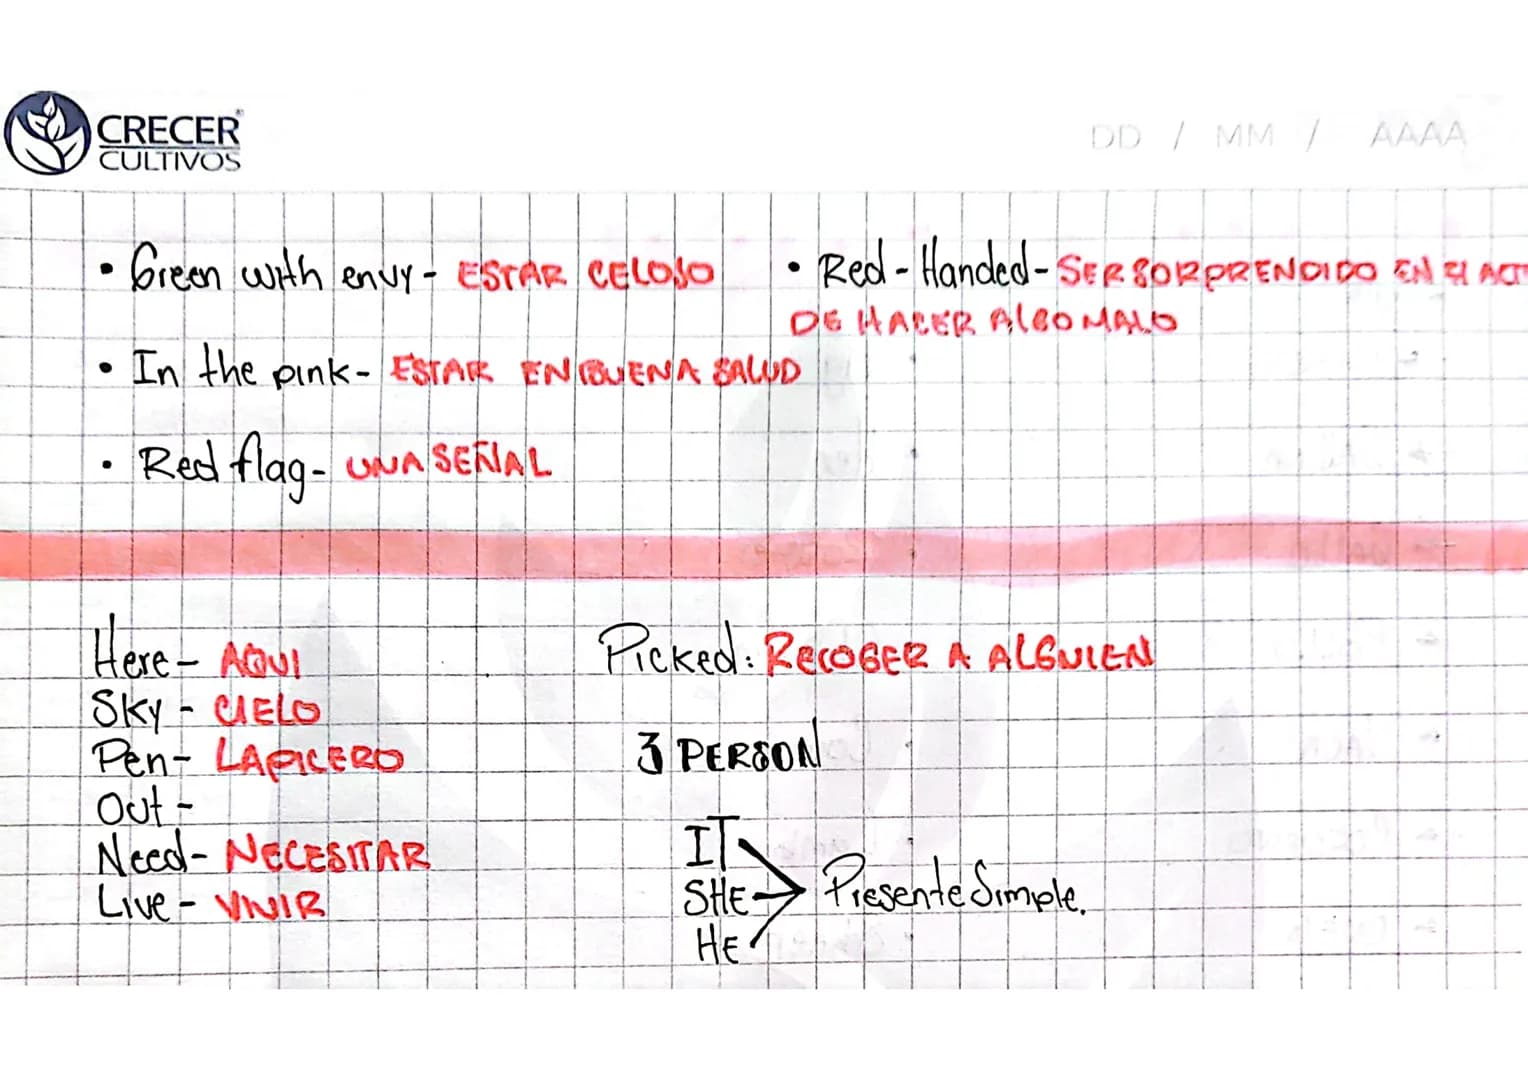 CRECER
CULTIVOS
DD / MM / AAAA
• Green with envy - ESTAR CELOSO
• Red-Handed - SER SORPRENDIDO EN El ACT
DE HACER AlGO MALO
• In the pink - ESTAR EN BUENA SALUD
• Red flag - UNA SEÑAL
Here - AQUI
Sky - CIELO
Pen - LAPICERO
Out -
Need - NECESITAR
Live - VIVIR
Picked: RECOGER A ALGUIEN
3 PERSON
IT
SHE
HE
Presente Simple.